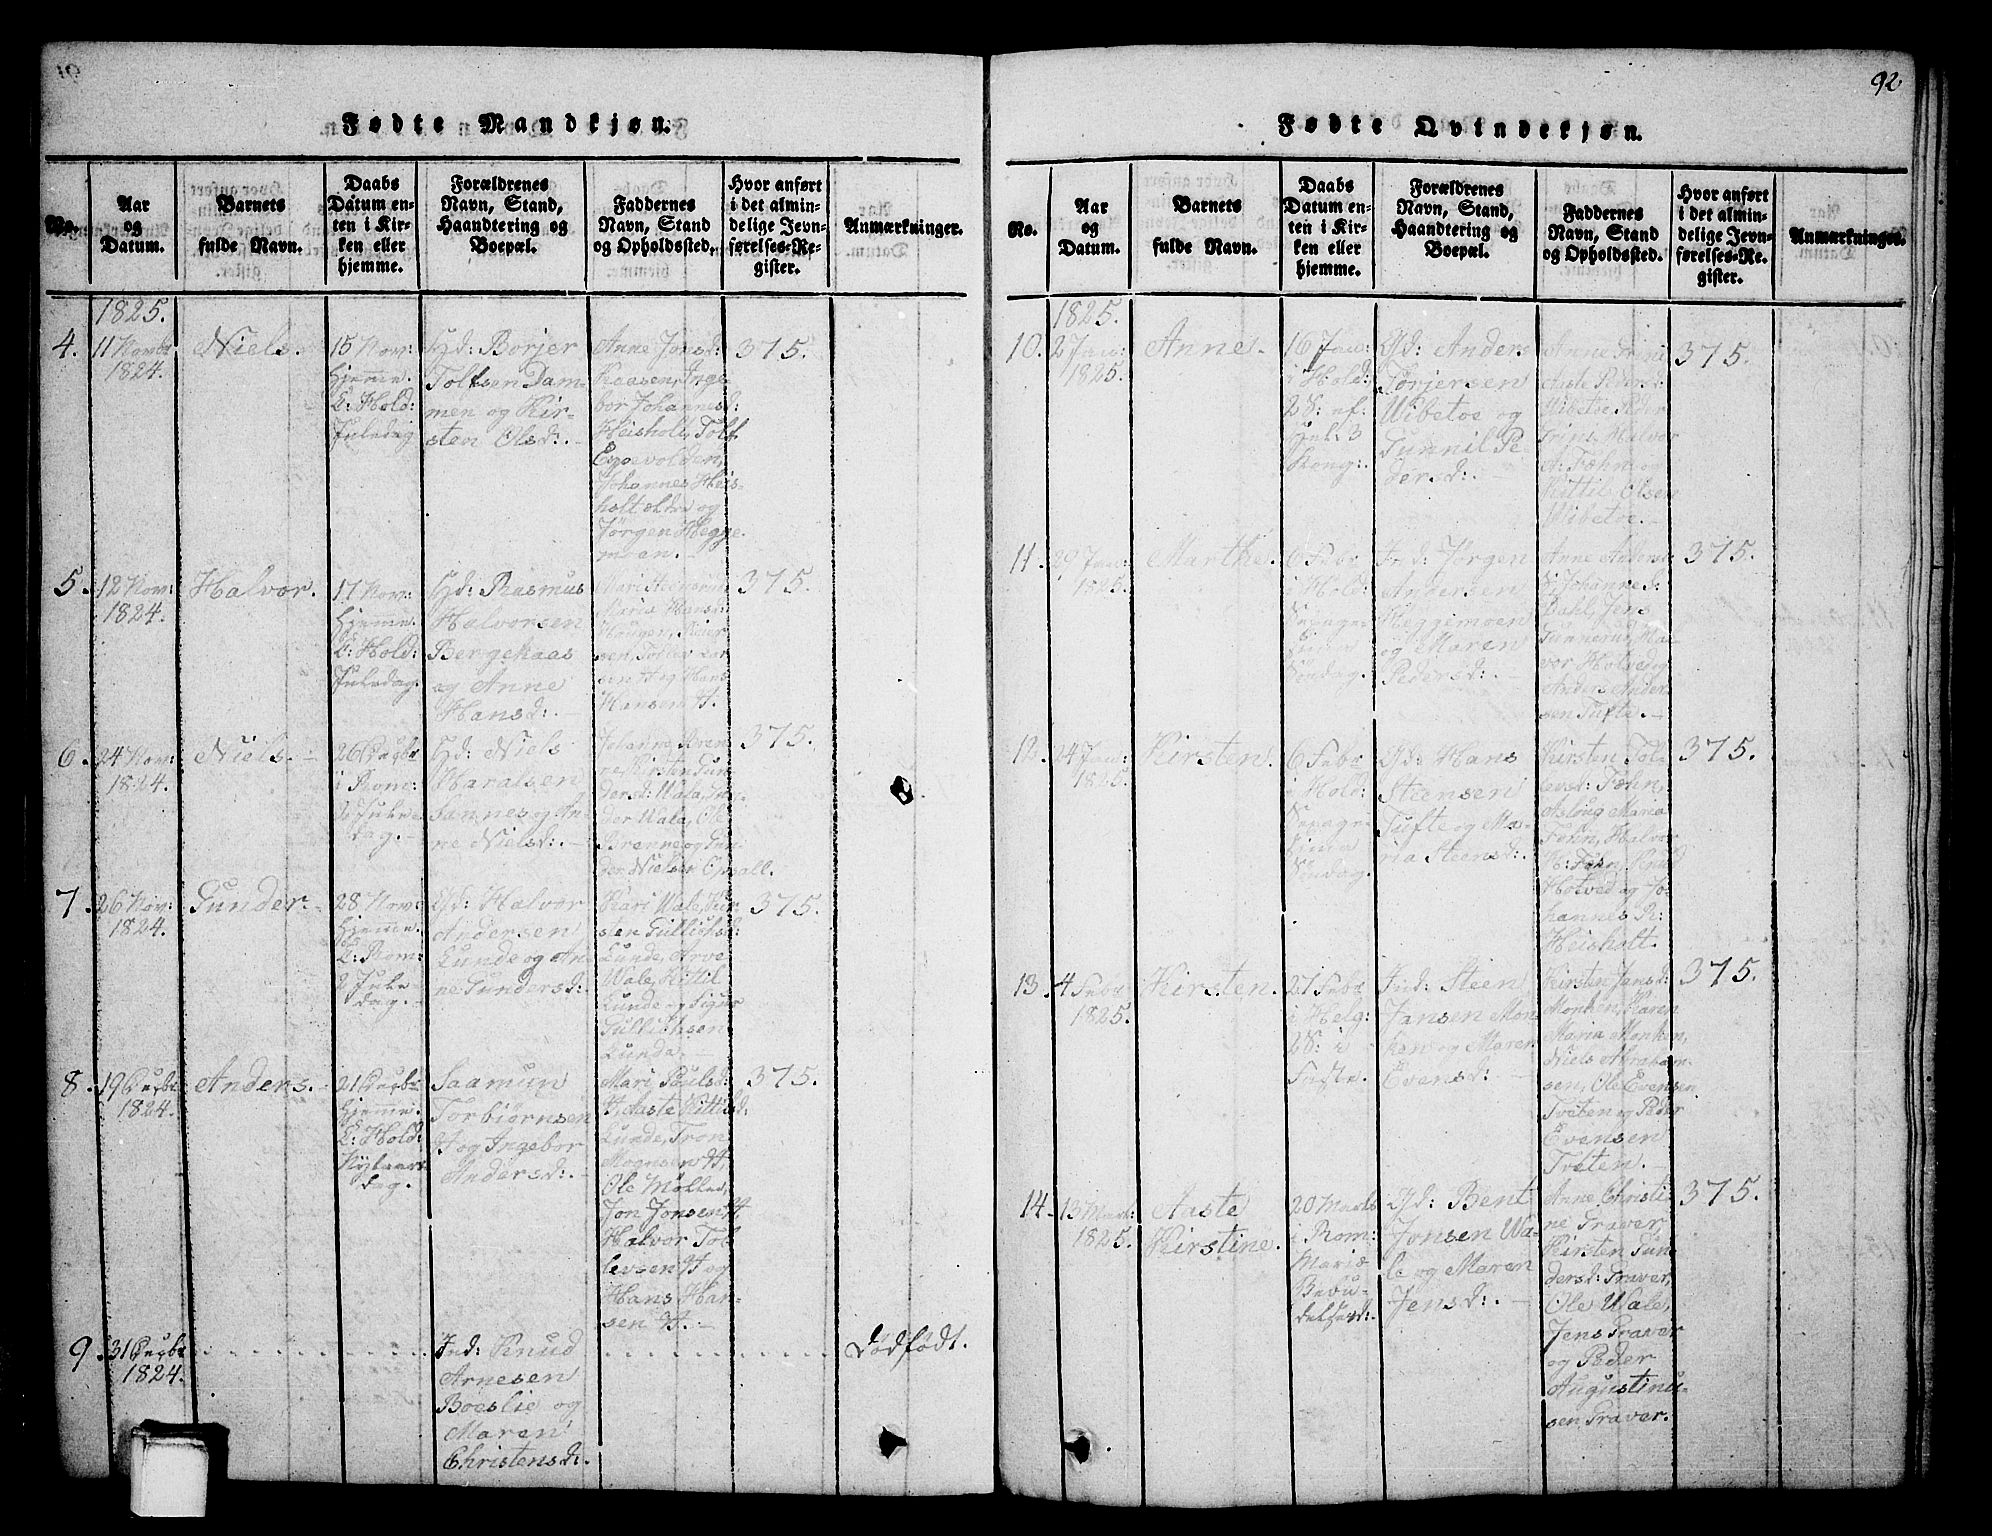 Fødte Mandkjøn.
No.
Aar
og
Datum.
Barnets
fulde Navn.
Daabs
Datum en-
ten i Kir-
ken eller
hjemme.
Forældrenes
Navn, Stand,
Haandtering og
Boepæl.
Faddernes
Navn, Stand
og Opholdssted.
Hvor anført
i det almin-
delige Jevn-
førelses-Re-
gister.
Anmærkninger.
1825.
4.
11 Novbr
1824.
Niels.
15 Nov:
Hjeme.
C: Hold:
Juledag
Gd: Borjer
Tolfsen Dam-
men og Kir-
sten Olsd:.
Anne Jonsd:
Kaasen, Inge-
bor Johannesd:
Heisholt, Tolf
Johannes Heis-
holt og
Jørgen Hegge-
moen.
375.
5.
12 Nov:
1824.
Halvor.
17 Nov:
Hjeme.
C: Hold:
Juledag
Gd: Rasmus
Halvorsen
Bergekaas
og Anne
Hansd:.
Maria Hansd:
Haugen,
sen H og Hans
Hansen H.
375.
6.
24 Nov:
1824.
Niels.
26
i Rom:
2 Jule
dag.
Gd: Niels
Haralsen
Sannes og An-
ne Nielsd:.
Johanne Bren-
ne, Kirsten Gun-
dersd: Wala,
der Wale, Ole
Brenne og Gun-
der Nielsen Opsall.
375.
7.
26 Nov:
1824.
Gunder.
28 Nov:
Hjeme.
C: Rom:
2 Jule
dag.
Gd: Halvor
Andersen
Lunde og An-
ne Gundersd:
Kari Wale, Kir-
sten Gullichsd:
Lunde, Arve
Wale, Kittil
Lunde og Sigur
Gullichsen
Lunde.
375.
8.
19
1824.
Anders.
21
Hjeme.
C: Hold:
Nytaars
dag.
Saamun
Torbiørnsen
H og Ingebor
Andersd:.
Mari Poulsd:
H, Aaste Kittilsd:
Lunde, Tron
Mognsen H,
Ole Møllen,
Jon Jonsen H.
Halvor Tol-
levsen H og
Hans Han-
sen H.
375.
9.
31
1824.
Ind: Knud
Arnesen
Boeslie og
Maren
Christensd:.
Dødfødt.
92
Fødte Qvindekjøn.
No.
Aar
og
Datum.
Barnets
fulde Navn.
Daabs
Datum en-
ten i Kir-
ken eller
hjemme.
Forældrenes
Navn, Stand,
Haandtering og
Boepæl.
Faddernes
Navn, Stand
og Opholdssted.
Hvor anført
i det almin-
delige Jevn-
førelses-Re-
gister.
Anmærkninger.
1825.
10.
2 Jan:
1825.
Anne.
16 Jan:
i Hold:
2S: ef:
Hel: 3
Kong:.
Gd: Anders
Torjersen
Wibetoe og
Gunnil Pe-
dersd:.
Anne Trine
Aaste Pedersd:
Wibetoe, Peder
Halvor
A: Føhn og
Kittil Olsen
Wibetoe.
375.
11.
29 Jan:
1825.
Marthe.
6 Febr
i Hold:
Søndag.
Ind: Jørgen
Andersen
Heggemoen
og Maren
Pedersd:
Anne Andersd:
Johannesd:
Dahl, Jens
Gunnerud, Hal-
vor Holved og
Anders Ander-
sen Tufte.
375.
12.
24 Jan:
1825.
Kirsten.
6 Febr
i Hold:
Søndag.
Gd: Hans
Steensen
Tufte og Ma-
ria Steensd:.
Kirsten Tol-
levsd: Føhn,
Asloug Maria
Føhn, Halvor
H: Føhn, Knud
Hotved og Jo-
hannes R:
Heisholt.
375.
13.
4 Febr
1825.
Kirsten.
27 Febr
i Helg:
2S: i
Faste.
Ind: Steen
Jansen Mon-
ken og Maren
Evensd:.
Kirsten Jansd:
Monken, Karen
Maria Monken,
Niels Abraham-
sen, Ole Evensen
Tveten og Peder
Evensen
Tveten.
375.
14.
13 Mart:
1825.
Aaste
Kirstine.
20 Marts
i Rom:
Mariæ
Bebu-
delsesd:
Gd: Bent
Jonsen Wa-
le og Maren
Jensd:.
Anne Christi-
ne Traver
Kirsten Gun-
dersd: Traver,
Ole Wale,
Jens Traver
og Peder
Augustinu-
sen Traver.
375.